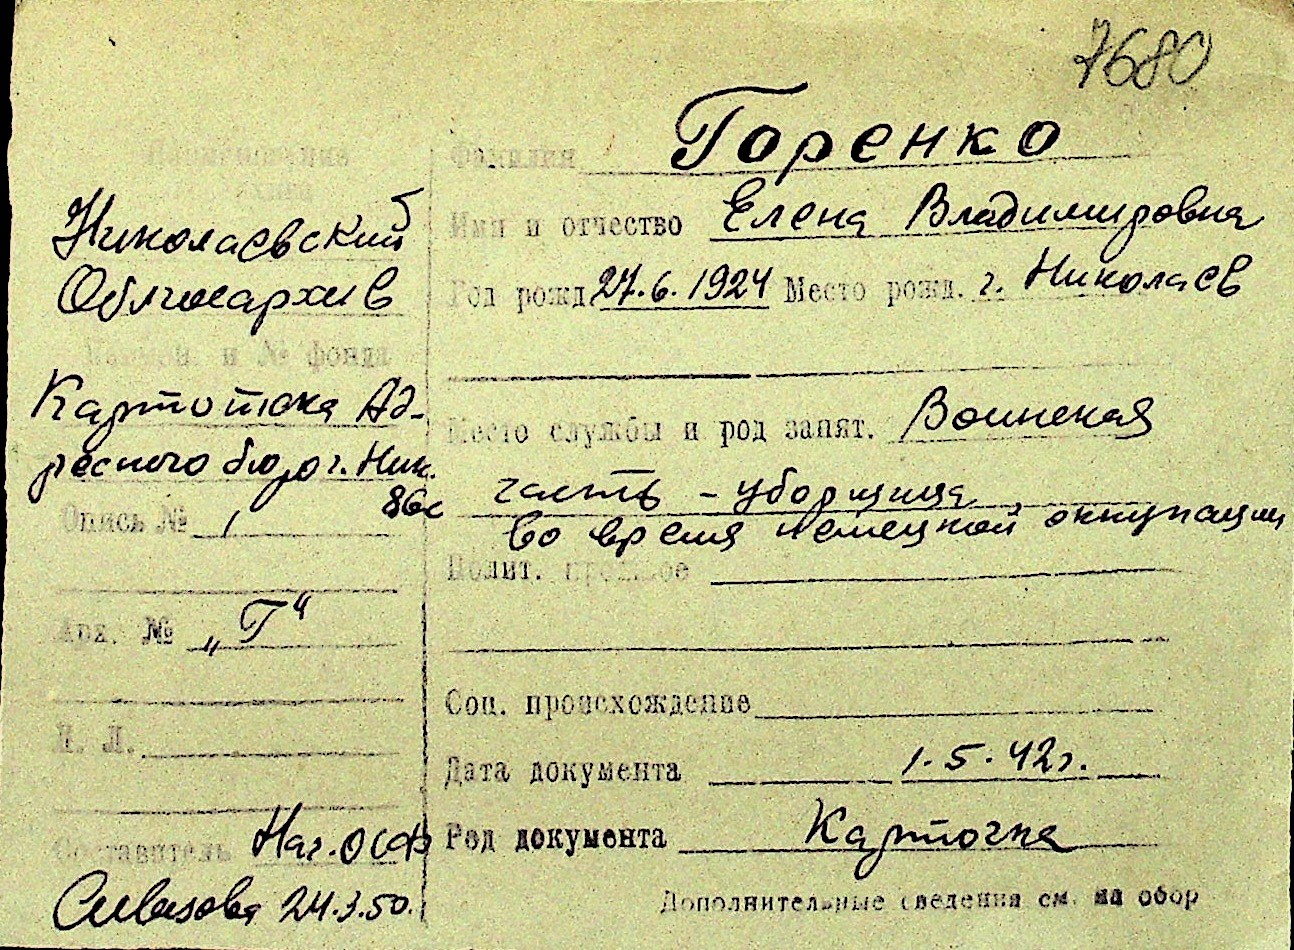 7680
Наименование
архива
Николаевский
Облгосархив
и № фонда
Картотека Ад-
ресного бюро г. Ник.
Опись № 1
Арх. № „Г“
К. Л.
Составитель Нач. ОСФ
24.3.50.
Фамилия Горенко
Имя и отчество Елена Владимировна
Год рожд. 27.6.1924 Место рожд. г. Николаев
Место службы и род занят. Воинская
часть - уборщица
во время немецкой оккупации
Полит. прошлое
Соц. происхождение
Дата документа 1.5.42г.
Род документа Карточка
Дополнительные сведения см. на обор